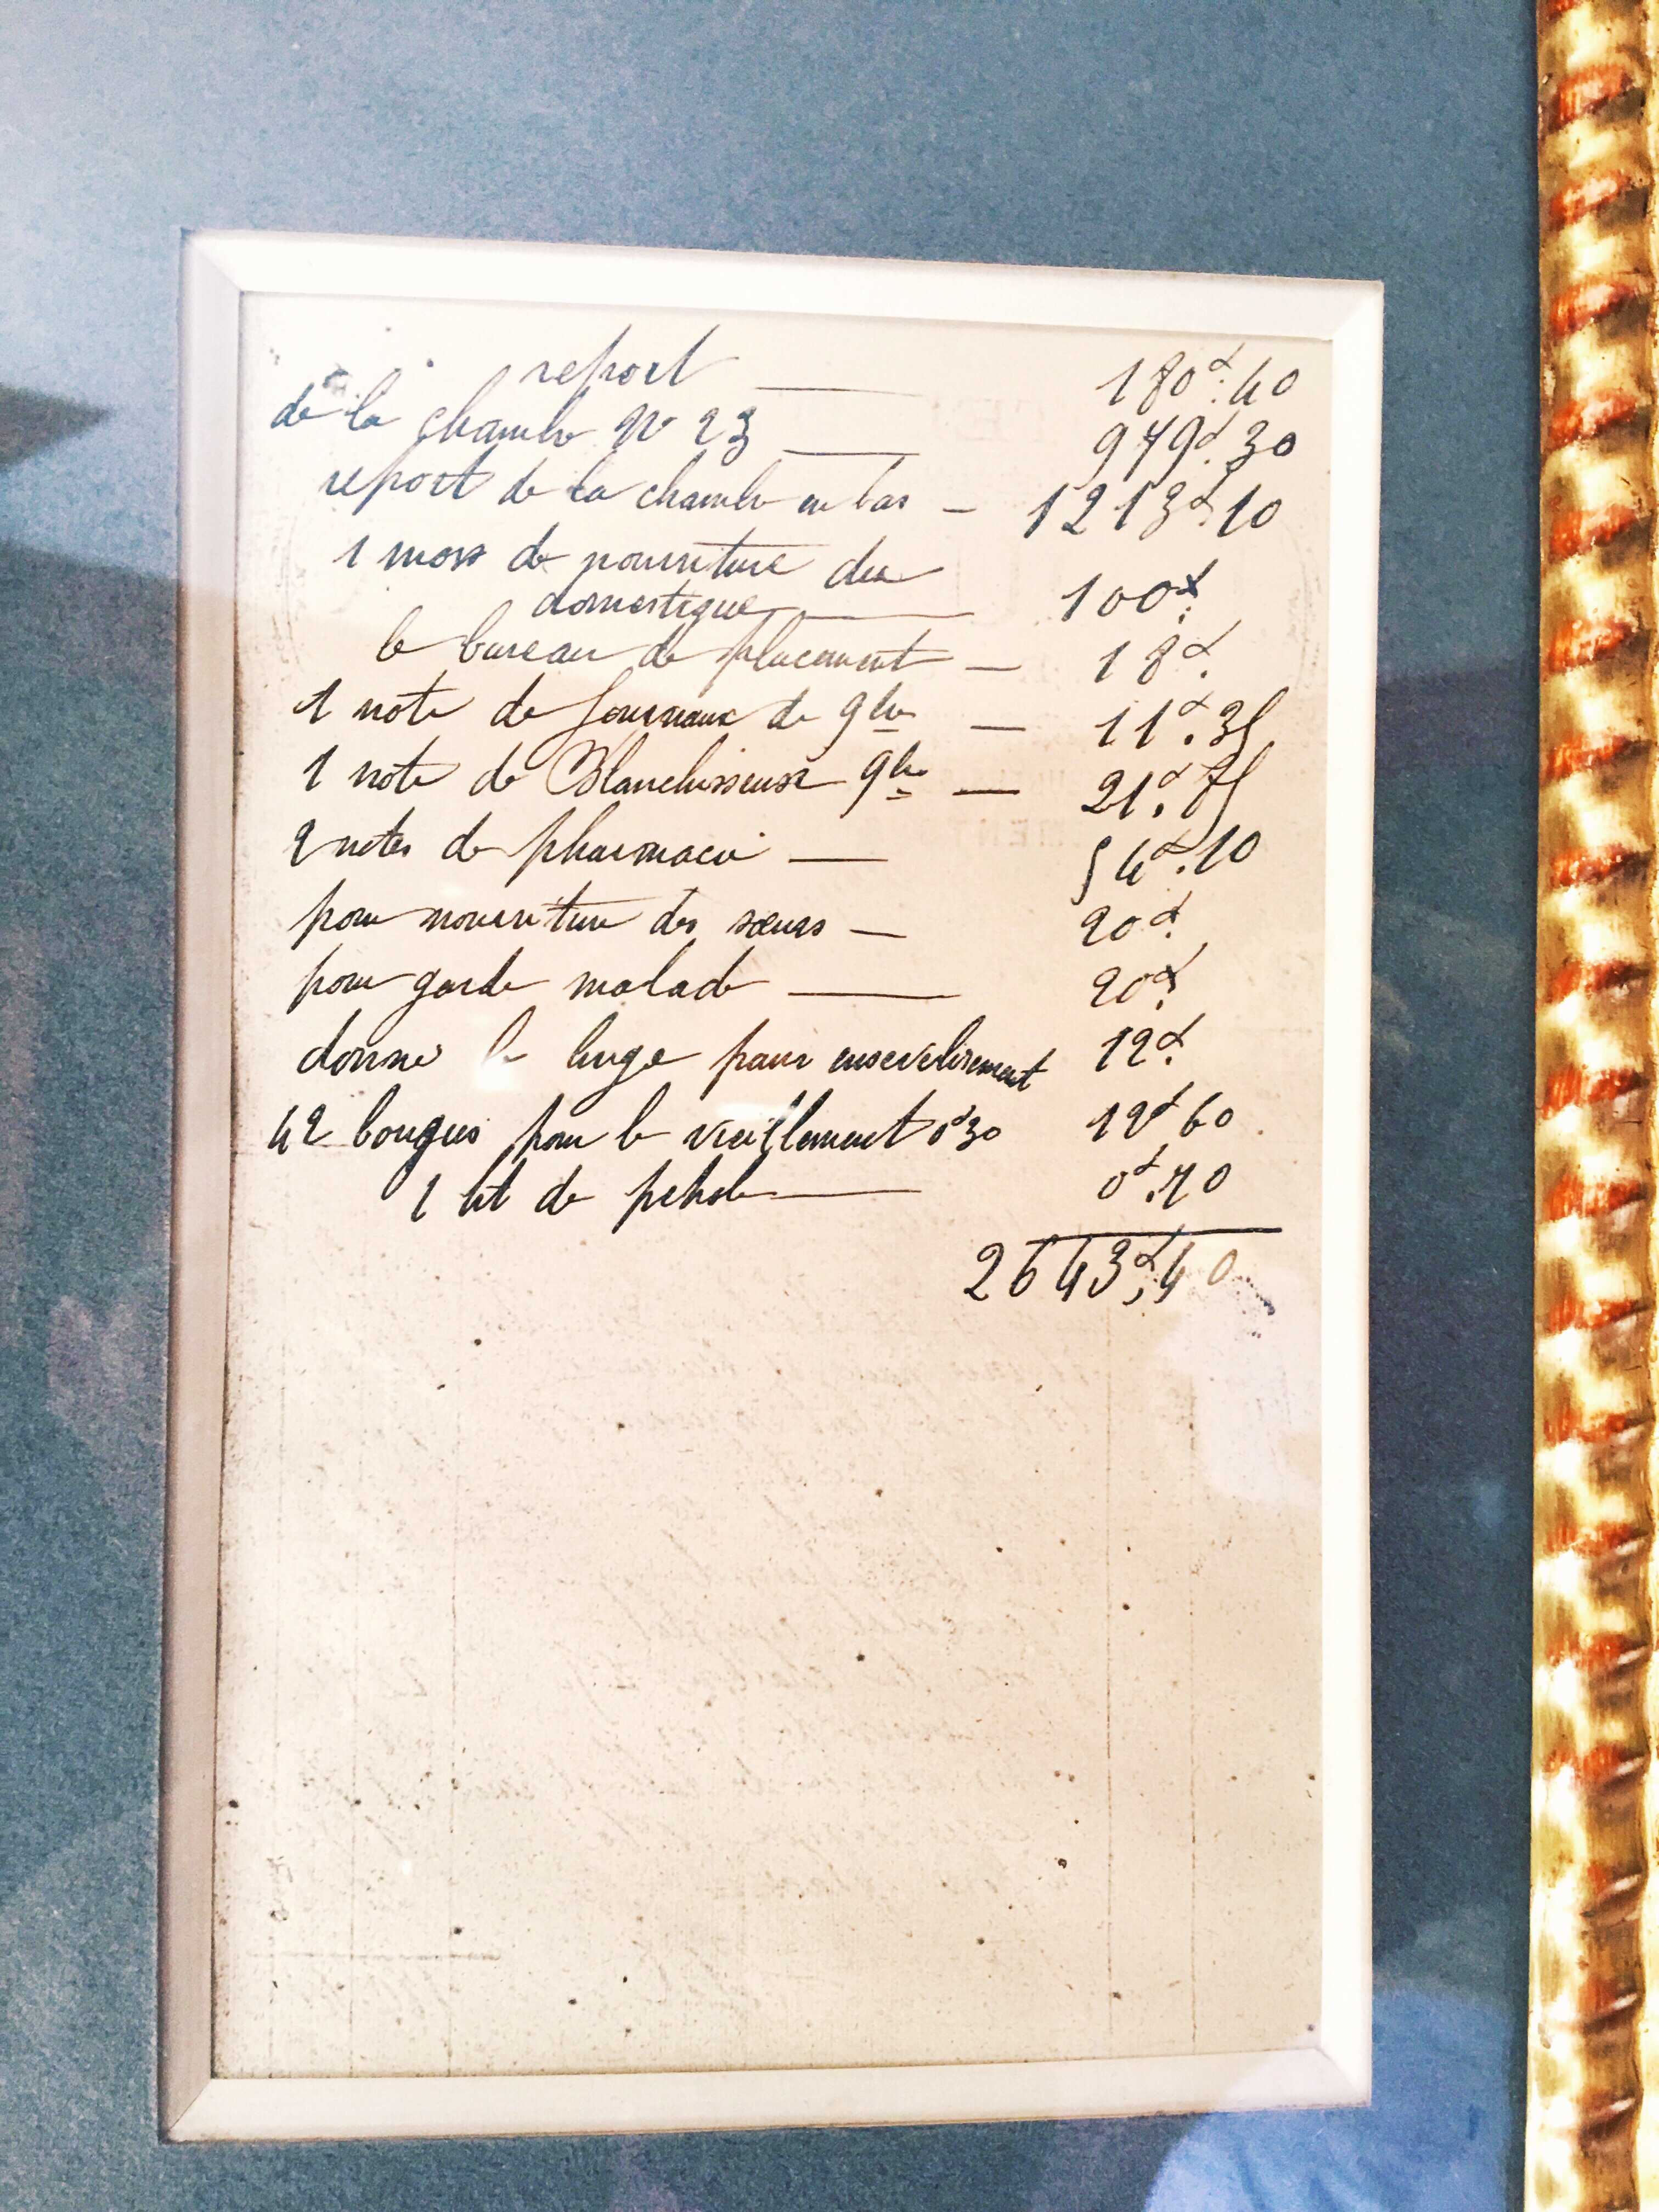 report — 180f.40
de la chambre No 23 — 979f.30
report de la chambre en bas — 1213f.10
1 mois de nourriture du
domestique — 100f.
le bureau de placement — 18f.
1 note de Journaux de 9bre — 11f.35
1 note de Blanchisseuse 9bre — 21f.85
2 notes de pharmacie — 54f.10
pour nourriture des sœurs — 20f.
pour garde malade — 20f.
donné le linge pour ensevelirement 12f.
42 bougies pour le vieillement 0f30 12f60
1 lit de petrole — 0f.70
2643f,40